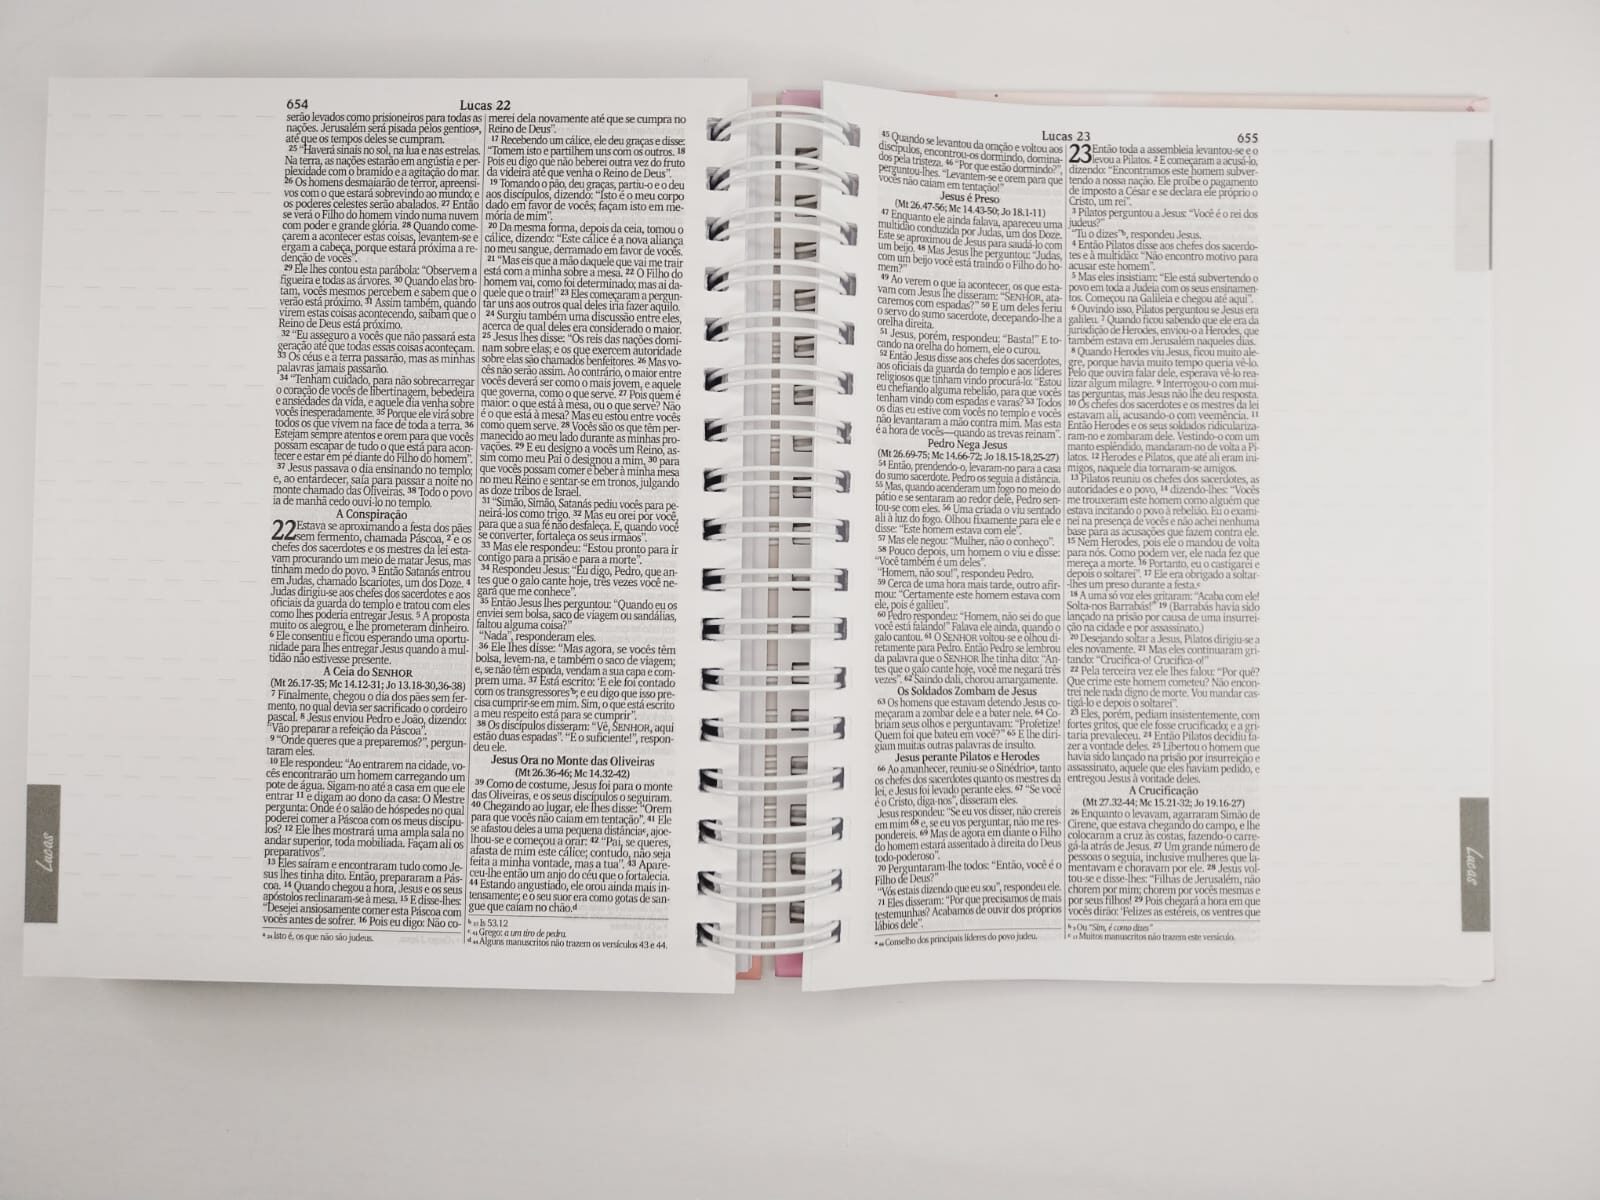 654
Lucas 22
serão levados como prisioneiros para todas as
nações. Jerusalém será pisada pelos gentiosᵃ,
até que os tempos deles se cumpram.
25 “Haverá sinais no sol, na lua e nas estrelas.
Na terra, as nações estarão em angústia e per-
plexidade com o bramido e a agitação do mar.
26 Os homens desmaiarão de terror, apreensi-
vos com o que estará sobrevindo ao mundo; e
os poderes celestes serão abalados. 27 Então
se verá o Filho do homem vindo numa nuvem
com poder e grande glória. 28 Quando come-
çarem a acontecer estas coisas, levantem-se e
ergam a cabeça, porque estará próxima a re-
denção de vocês”.
29 Ele lhes contou esta parábola: “Observem a
figueira e todas as árvores. 30 Quando elas bro-
tam, vocês mesmos percebem e sabem que o
verão está próximo. 31 Assim também, quando
virem estas coisas acontecendo, saibam que o
Reino de Deus está próximo.
32 “Eu asseguro a vocês que não passará esta
geração até que todas essas coisas aconteçam.
33 Os céus e a terra passarão, mas as minhas
palavras jamais passarão.
34 “Tenham cuidado, para não sobrecarregar
o coração de vocês de libertinagem, bebedeira
e ansiedades da vida, e aquele dia venha sobre
vocês inesperadamente. 35 Porque ele virá sobre
todos os que vivem na face de toda a terra. 36
Estejam sempre atentos e orem para que vocês
possam escapar de tudo o que está para acon-
tecer e estar em pé diante do Filho do homem”.
37 Jesus passava o dia ensinando no templo;
e, ao entardecer, saía para passar a noite no
monte chamado das Oliveiras. 38 Todo o povo
ia de manhã cedo ouvi-lo no templo.
A Conspiração
22 Estava se aproximando a festa dos pães
sem fermento, chamada Páscoa, 2 e os
chefes dos sacerdotes e os mestres da lei esta-
vam procurando um meio de matar Jesus, mas
tinham medo do povo. 3 Então Satanás entrou
em Judas, chamado Iscariotes, um dos Doze. 4
Judas dirigiu-se aos chefes dos sacerdotes e aos
oficiais da guarda do templo e tratou com eles
como lhes poderia entregar Jesus. 5 A proposta
muito os alegrou, e lhe prometeram dinheiro.
6 Ele consentiu e ficou esperando uma oportu-
nidade para lhes entregar Jesus quando a mul-
tidão não estivesse presente.
A Ceia do SENHOR
(Mt 26.17-35; Mc 14.12-31; Jo 13.18-30,36-38)
7 Finalmente, chegou o dia dos pães sem fer-
mento, no qual devia ser sacrificado o cordeiro
pascal. 8 Jesus enviou Pedro e João, dizendo:
“Vão preparar a refeição da Páscoa”.
9 “Onde queres que a preparemos?”, pergun-
taram eles.
10 Ele respondeu: “Ao entrarem na cidade, vo-
cês encontrarão um homem carregando um
pote de água. Sigam-no até a casa em que ele
entrar 11 e digam ao dono da casa: O Mestre
pergunta: Onde é o salão de hóspedes no qual
poderei comer a Páscoa com os meus discípu-
los? 12 Ele lhes mostrará uma ampla sala no
andar superior, toda mobiliada. Façam ali os
preparativos”.
13 Eles saíram e encontraram tudo como Je-
sus lhes tinha dito. Então, prepararam a Pás-
coa. 14 Quando chegou a hora, Jesus e os seus
apóstolos reclinaram-se à mesa. 15 E disse-lhes:
“Desejei ansiosamente comer esta Páscoa com
vocês antes de sofrer. 16 Pois eu digo: Não co-
ᵃ 24 Isto é, os que não são judeus.
merei dela novamente até que se cumpra no
Reino de Deus”.
17 Recebendo um cálice, ele deu graças e disse:
“Tomem isto e partilhem uns com os outros. 18
Pois eu digo que não beberei outra vez do fruto
da videira até que venha o Reino de Deus”.
19 Tomando o pão, deu graças, partiu-o e o deu
aos discípulos, dizendo: “Isto é o meu corpo
dado em favor de vocês; façam isto em me-
mória de mim”.
20 Da mesma forma, depois da ceia, tomou o
cálice, dizendo: “Este cálice é a nova aliança
no meu sangue, derramado em favor de vocês.
21 “Mas eis que a mão daquele que vai me trair
está com a minha sobre a mesa. 22 O Filho do
homem vai, como foi determinado; mas ai da-
quele que o trair!” 23 Eles começaram a pergun-
tar uns aos outros qual deles iria fazer aquilo.
24 Surgiu também uma discussão entre eles,
acerca de qual deles era considerado o maior.
25 Jesus lhes disse: “Os reis das nações domi-
nam sobre elas; e os que exercem autoridade
sobre elas são chamados benfeitores. 26 Mas vo-
cês não serão assim. Ao contrário, o maior entre
vocês deverá ser como o mais jovem, e aquele
que governa, como o que serve. 27 Pois quem é
maior: o que está à mesa, ou o que serve? Não
é o que está à mesa? Mas eu estou entre vocês
como quem serve. 28 Vocês são os que têm per-
manecido ao meu lado durante as minhas pro-
vações. 29 E eu designo a vocês um Reino, as-
sim como meu Pai o designou a mim, 30 para
que vocês possam comer e beber à minha mesa
no meu Reino e sentar-se em tronos, julgando
as doze tribos de Israel.
31 “Simão, Simão, Satanás pediu vocês para pe-
neirá-los como trigo. 32 Mas eu orei por você,
para que a sua fé não desfaleça. E, quando você
se converter, fortaleça os seus irmãos”.
33 Mas ele respondeu: “Estou pronto para ir
contigo para a prisão e para a morte”.
34 Respondeu Jesus: “Eu digo, Pedro, que an-
tes que o galo cante hoje, três vezes você ne-
gará que me conhece”.
35 Então Jesus lhes perguntou: “Quando eu os
enviei sem bolsa, saco de viagem ou sandálias,
faltou alguma coisa?”
“Nada”, responderam eles.
36 Ele lhes disse: “Mas agora, se vocês têm
bolsa, levem-na, e também o saco de viagem;
e, se não têm espada, vendam a sua capa e com-
prem uma. 37 Está escrito: ‘E ele foi contado
com os transgressores’ᵇ; e eu digo que isso pre-
cisa cumprir-se em mim. Sim, o que está escrito
a meu respeito está para se cumprir”.
38 Os discípulos disseram: “Vê, SENHOR, aqui
estão duas espadas”. “É o suficiente!”, respon-
deu ele.
Jesus Ora no Monte das Oliveiras
(Mt 26.36-46; Mc 14.32-42)
39 Como de costume, Jesus foi para o monte
das Oliveiras, e os seus discípulos o seguiram.
40 Chegando ao lugar, ele lhes disse: “Orem
para que vocês não caiam em tentação”. 41 Ele
se afastou deles a uma pequena distânciaᶜ, ajoe-
lhou-se e começou a orar: 42 “Pai, se queres,
afasta de mim este cálice; contudo, não seja
feita a minha vontade, mas a tua”. 43 Apare-
ceu-lhe então um anjo do céu que o fortalecia.
44 Estando angustiado, ele orou ainda mais in-
tensamente; e o seu suor era como gotas de san-
gue que caíam no chão.ᵈ
ᵇ 37 Is 53.12
ᶜ 41 Grego: a um tiro de pedra.
ᵈ 44 Alguns manuscritos não trazem os versículos 43 e 44.
Lucas
Lucas 23
655
45 Quando se levantou da oração e voltou aos
discípulos, encontrou-os dormindo, domina-
dos pela tristeza. 46 “Por que estão dormindo?”,
perguntou-lhes. “Levantem-se e orem para que
vocês não caiam em tentação!”
Jesus é Preso
(Mt 26.47-56; Mc 14.43-50; Jo 18.1-11)
47 Enquanto ele ainda falava, apareceu uma
multidão conduzida por Judas, um dos Doze.
Este se aproximou de Jesus para saudá-lo com
um beijo. 48 Mas Jesus lhe perguntou: “Judas,
com um beijo você está traindo o Filho do ho-
mem?”
49 Ao verem o que ia acontecer, os que esta-
vam com Jesus lhe disseram: “SENHOR, ata-
caremos com espadas?” 50 E um deles feriu
o servo do sumo sacerdote, decepando-lhe a
orelha direita.
51 Jesus, porém, respondeu: “Basta!” E to-
cando na orelha do homem, ele o curou.
52 Então Jesus disse aos chefes dos sacerdotes,
aos oficiais da guarda do templo e aos líderes
religiosos que tinham vindo procurá-lo: “Estou
eu chefiando alguma rebelião, para que vocês
tenham vindo com espadas e varas? 53 Todos
os dias eu estive com vocês no templo e vocês
não levantaram a mão contra mim. Mas esta
é a hora de vocês—quando as trevas reinam”.
Pedro Nega Jesus
(Mt 26.69-75; Mc 14.66-72; Jo 18.15-18,25-27)
54 Então, prendendo-o, levaram-no para a casa
do sumo sacerdote. Pedro os seguia à distância.
55 Mas, quando acenderam um fogo no meio do
pátio e se sentaram ao redor dele, Pedro sen-
tou-se com eles. 56 Uma criada o viu sentado
ali à luz do fogo. Olhou fixamente para ele e
disse: “Este homem estava com ele”.
57 Mas ele negou: “Mulher, não o conheço”.
58 Pouco depois, um homem o viu e disse:
“Você também é um deles”.
“Homem, não sou!”, respondeu Pedro.
59 Cerca de uma hora mais tarde, outro afir-
mou: “Certamente este homem estava com
ele, pois é galileu”.
60 Pedro respondeu: “Homem, não sei do que
você está falando!” Falava ele ainda, quando o
galo cantou. 61 O SENHOR voltou-se e olhou di-
retamente para Pedro. Então Pedro se lembrou
da palavra que o SENHOR lhe tinha dito: “An-
tes que o galo cante hoje, você me negará três
vezes”. 62 Saindo dali, chorou amargamente.
Os Soldados Zombam de Jesus
63 Os homens que estavam detendo Jesus co-
meçaram a zombar dele e a bater nele. 64 Co-
briam seus olhos e perguntavam: “Profetize!
Quem foi que bateu em você?” 65 E lhe diri-
giam muitas outras palavras de insulto.
Jesus perante Pilatos e Herodes
66 Ao amanhecer, reuniu-se o Sinédrioᵃ, tanto
os chefes dos sacerdotes quanto os mestres da
lei, e Jesus foi levado perante eles. 67 “Se você
é o Cristo, diga-nos”, disseram eles.
Jesus respondeu: “Se eu vos disser, não crereis
em mim 68 e, se eu vos perguntar, não me res-
pondereis. 69 Mas de agora em diante o Filho
do homem estará assentado à direita do Deus
todo-poderoso”.
70 Perguntaram-lhe todos: “Então, você é o
Filho de Deus?”
“Vós estais dizendo que eu sou”, respondeu ele.
71 Eles disseram: “Por que precisamos de mais
testemunhas? Acabamos de ouvir dos próprios
lábios dele”.
ᵃ 66 Conselho dos principais líderes do povo judeu.
23 Então toda a assembleia levantou-se e o
levou a Pilatos. 2 E começaram a acusá-lo,
dizendo: “Encontramos este homem subver-
tendo a nossa nação. Ele proíbe o pagamento
de imposto a César e se declara ele próprio o
Cristo, um rei”.
3 Pilatos perguntou a Jesus: “Você é o rei dos
judeus?”
“Tu o dizes”ᵇ, respondeu Jesus.
4 Então Pilatos disse aos chefes dos sacerdo-
tes e à multidão: “Não encontro motivo para
acusar este homem”.
5 Mas eles insistiam: “Ele está subvertendo o
povo em toda a Judeia com os seus ensinamen-
tos. Começou na Galileia e chegou até aqui”.
6 Ouvindo isso, Pilatos perguntou se Jesus era
galileu. 7 Quando ficou sabendo que ele era da
jurisdição de Herodes, enviou-o a Herodes, que
também estava em Jerusalém naqueles dias.
8 Quando Herodes viu Jesus, ficou muito ale-
gre, porque havia muito tempo queria vê-lo.
Pelo que ouvira falar dele, esperava vê-lo rea-
lizar algum milagre. 9 Interrogou-o com mui-
tas perguntas, mas Jesus não lhe deu resposta.
10 Os chefes dos sacerdotes e os mestres da lei
estavam ali, acusando-o com veemência. 11
Então Herodes e os seus soldados ridiculariza-
ram-no e zombaram dele. Vestindo-o com um
manto esplêndido, mandaram-no de volta a Pi-
latos. 12 Herodes e Pilatos, que até ali eram ini-
migos, naquele dia tornaram-se amigos.
13 Pilatos reuniu os chefes dos sacerdotes, as
autoridades e o povo, 14 dizendo-lhes: “Vocês
me trouxeram este homem como alguém que
estava incitando o povo à rebelião. Eu o exami-
nei na presença de vocês e não achei nenhuma
base para as acusações que fazem contra ele.
15 Nem Herodes, pois ele o mandou de volta
para nós. Como podem ver, ele nada fez que
mereça a morte. 16 Portanto, eu o castigarei e
depois o soltarei”. 17 Ele era obrigado a soltar-
-lhes um preso durante a festa.ᶜ
18 A uma só voz eles gritaram: “Acaba com ele!
Solta-nos Barrabás!” 19 (Barrabás havia sido
lançado na prisão por causa de uma insurrei-
ção na cidade e por assassinato.)
20 Desejando soltar a Jesus, Pilatos dirigiu-se a
eles novamente. 21 Mas eles continuaram gri-
tando: “Crucifica-o! Crucifica-o!”
22 Pela terceira vez ele lhes falou: “Por quê?
Que crime este homem cometeu? Não encon-
trei nele nada digno de morte. Vou mandar cas-
tigá-lo e depois o soltarei”.
23 Eles, porém, pediam insistentemente, com
fortes gritos, que ele fosse crucificado; e a gri-
taria prevaleceu. 24 Então Pilatos decidiu fa-
zer a vontade deles. 25 Libertou o homem que
havia sido lançado na prisão por insurreição e
assassinato, aquele que eles haviam pedido, e
entregou Jesus à vontade deles.
A Crucificação
(Mt 27.32-44; Mc 15.21-32; Jo 19.16-27)
26 Enquanto o levavam, agarraram Simão de
Cirene, que estava chegando do campo, e lhe
colocaram a cruz às costas, fazendo-o carre-
gá-la atrás de Jesus. 27 Um grande número de
pessoas o seguia, inclusive mulheres que la-
mentavam e choravam por ele. 28 Jesus vol-
tou-se e disse-lhes: “Filhas de Jerusalém, não
chorem por mim; chorem por vocês mesmas e
por seus filhos! 29 Pois chegará a hora em que
vocês dirão: ‘Felizes as estéreis, os ventres que
ᵇ 3 Ou “Sim, é como dizes”
ᶜ 17 Muitos manuscritos não trazem este versículo.
Lucas